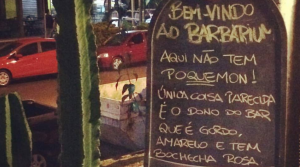 BEM-VINDO
AO BARBARIUM
AQUI NÃO TEM
POQUEMON!
ÚNICA COISA PARECIDA
É O DONO DO BAR
QUE É GORDO,
AMARELO E TEM
BOCHECHA ROSA